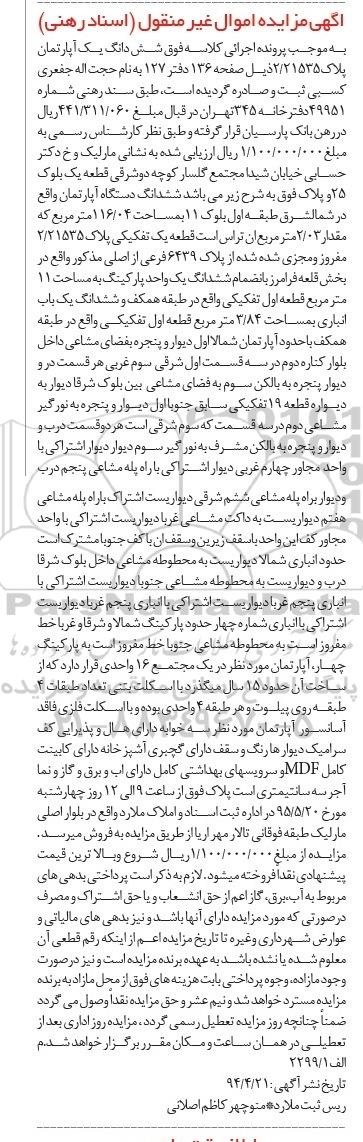 آگهی مزایده اموال غیر منقول (اسناد رهنی)
به موجب پرونده اجرائی کلاسه فوق شش دانگ یک آپارتمان
پلاک ۲/۲۱۵۳۵ ذیل صفحه ۱۳۶ دفتر ۱۲۷ به نام حجت اله جعفری
کسبی ثبت و صادره گردیده است، طبق سند رهنی شماره
۴۹۹۵۱ دفترخانه ۳۴۵ تهران در قبال مبلغ ۴۴۱/۳۱۱/۰۶۰ ریال
در رهن بانک پارسیان قرار گرفته و طبق نظر کارشناس رسمی به
مبلغ ۱/۱۰۰/۰۰۰/۰۰۰ ریال ارزیابی شده به نشانی مارلیک و خ دکتر
حسابی خیابان شیدا مجتمع گلسار کوچه دو شرقی قطعه یک بلوک
۲۵ و پلاک فوق به شرح زیر می باشد ششدانگ دستگاه آپارتمان واقع
در شمالشرق طبقه اول بلوک ۱۱ بمساحت ۱۱۶/۰۴ متر مربع که
مقدار ۲/۰۳ متر مربع ان تراس است قطعه یک تفکیکی پلاک ۲/۲۱۵۳۵
مفروز و مجزی شده شده از پلاک ۶۴۳۹ فرعی از اصلی مذکور واقع در
بخش قلعه فرامرز بانضمام ششدانگ یک واحد پارکینگ به مساحت ۱۱
متر مربع قطعه اول تفکیکی واقع در طبقه همکف و ششدانگ یک باب
انباری بمساحت ۳/۸۴ متر مربع قطعه اول تفکیکی واقع در طبقه
همکف باحدود آپارتمان شمالا اول دیوار و پنجره بفضای مشاعی داخل
بلوار کناره دوم در سه قسمت اول شرقی سوم غربی هر قسمت در و
دیوار پنجره به بالکن سوم به فضای مشاعی بین بلوک شرقا دیوار به
دیواره قطعه ۱۹ تفکیکی سابق جنوبا اول دیوار و پنجره به نورگیر
مشاعی دوم در سه قسمت که سوم شرقی است هر دو قسمت درب و
دیوار و پنجره به بالکن مشرف به نور گیر سوم دیوار دیوار اشتراکی با
واحد مجاور چهارم غربی دیوار اشتراکی با راه پله مشاعی پنجم درب
و دیوار به راه پله مشاعی ششم شرقی دیواریست اشتراک با راه پله مشاعی
هفتم دیواریست به داکت مشاعی غربا دیواریست اشتراکی با واحد
مجاور کف این واحد با سقف زیرین و سقف ان با کف جنوبا مشترک است
حدود انباری شمالا دیواریست به محطوطه مشاعی داخل بلوک شرقا
درب و دیواریست به محطوطه مشاعی جنوبا دیواریست اشتراکی با
انباری پنجم غربا دیواریست اشتراکی با انباری پنجم غربا دیواریست
اشتراکی با انباری شماره چهار حدود پارکینگ شمالا و شرقا و غربا خط
مفروز است به محوطه مشاعی جنوبا خط مفروز است به پارکینگ
چهار، آپارتمان مورد نظر در یک مجتمع ۱۶ واحدی قرار دارد که از
ساخت آن حدود ۱۵ سال میگذرد با اسکلت بتنی تعداد طبقات ۴
طبقه روی پیلوت و هر طبقه ۴ واحدی بوده و با اسکلت فلزی فاقد
آسانسور آپارتمان مورد نظر سه خوابه دارای هال و پذیرایی کف
سرامیک دیوارها رنگ و سقف دارای گچبری آشپزخانه دارای کابینت
کامل MDF و سرویسهای بهداشتی کامل دارای اب و برق و گاز و نما
آجر سه سانتیمتری است پلاک فوق از ساعت ۹ الی ۱۲ روز چهارشنبه
مورخ ۹۵/۵/۲۰ در اداره ثبت اسناد و املاک ملارد واقع در بلوار اصلی
مارلیک طبقه فوقانی تالار مهر اریا از طریق مزایده به فروش میرسد.
مزایده از مبلغ ۱/۱۰۰/۰۰۰/۰۰۰ ریال شروع و بالا ترین قیمت
پیشنهادی نقدا فروخته میشود. لازم به ذکر است پرداختی بدهی های
مربوط به آب،برق، گاز اعم از حق انشعاب و یا حق اشتراک و مصرف
درصورتی که مورد مزایده دارای آنها باشد و نیز بدهی های مالیاتی و
عوارض شهرداری و غیره تا تاریخ مزایده اعم از اینکه رقم قطعی آن
معلوم شده یا نشده باشد به عهده برنده مزایده است و نیز درصورت
وجود مازاده، وجوه پرداختی بابت هزینه های فوق از محل مازاد به برنده
مزایده مسترد خواهد شد و نیم عشر و حق مزایده نقدا وصول می گردد
ضمناً چنانچه روز مزایده تعطیل رسمی گردد، مزایده روز اداری بعد از
تعطیلی در همان ساعت و مکان مقرر برگزار خواهد شد. م
الف ۲۲۹۹/۱
تاریخ نشر آگهی: ۹۴/۴/۲۱
ریس ثبت ملارد*منوچهر کاظم اصلانی